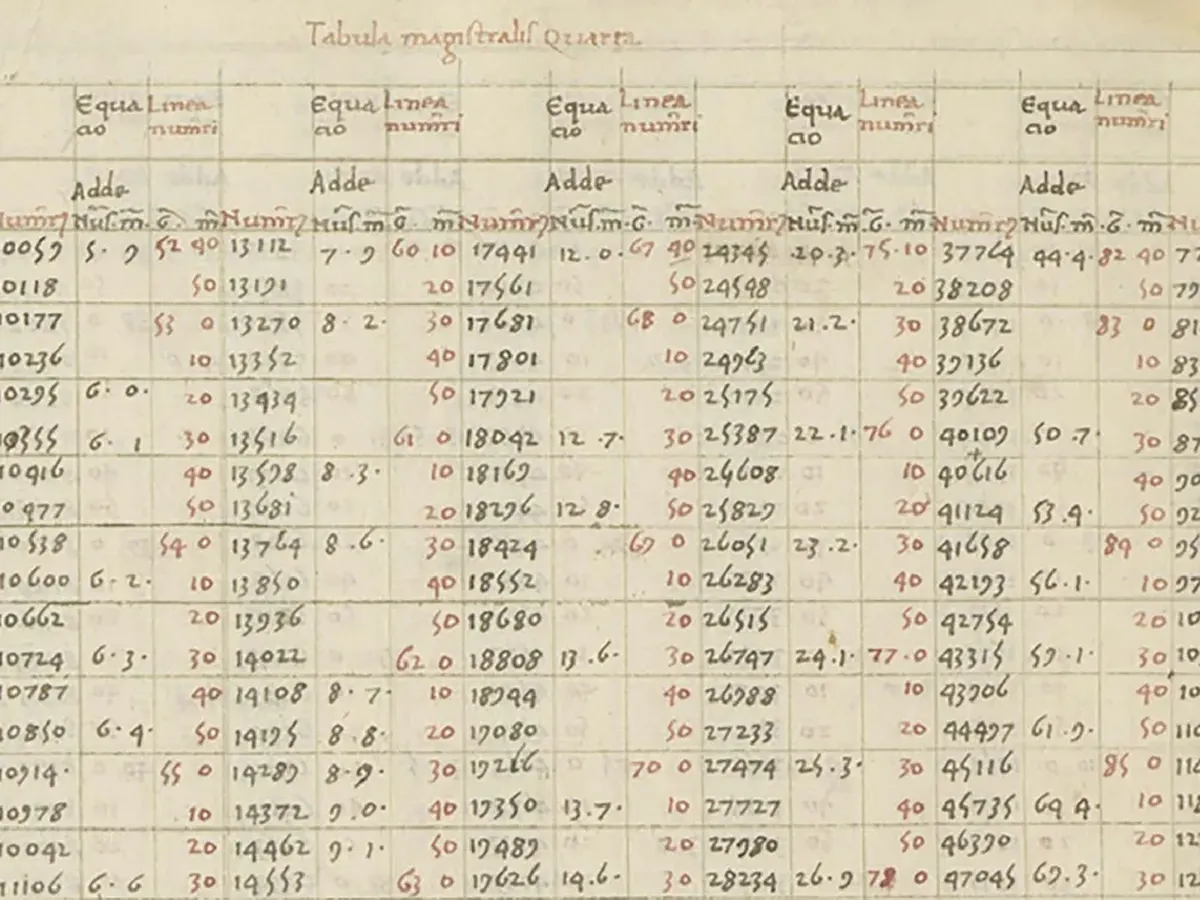 Tabula magistralis Quarta
Equa Linea Equa Linea Equa Linea Equa Linea Equa Linea
cio num̅ri cio num̅ri cio num̅ri cio num̅ri cio num̅ri
Adde Adde Adde Adde Adde
0059 5·9 52 40 13112 7·9 60 10 17441 12·0· 67 40 24345 ·20·3· 75·10 37764 44·4· 82 40 77
0118 50 13191 20 17561 50 24548 20 38208 50 79
10177 53 0 13270 8·2· 30 17681 68 0 24751 21·2· 30 38672 83 0 81
10236 10 13352 40 17801 10 24963 40 39136 10 83
10295 6·0· 20 13434 50 17921 20 25175 50 39622 20 85
10355 6·1 30 13516 61 0 18042 12·7· 30 25387 22·1· 76 0 40109 50·7· 30 87
10416 40 13598 8·3· 10 18169 40 25608 10 40616 40 90
10477 50 13681 20 18296 12 8· 50 25829 20 41124 53·4· 50 92
10538 54 0 13764 8·6· 30 18424 69 0 26051 23·2· 30 41658 84 0 95
10600 6·2· 10 13850 40 18552 10 26283 40 42193 56·1· 10 97
10662 20 13936 50 18680 20 26515 50 42754 20 10
10724 6·3· 30 14022 62 0 18808 13·6· 30 26747 24·1· 77·0 43315 59·1· 30 10
10787 40 14108 8·7· 10 18944 40 26988 10 43906 40 10
10850 6·4· 50 14195 8·8· 20 19080 50 27233 20 44497 61·9· 50 110
10914· 55 0 14284 8·9· 30 70 0 27474 25·3· 30 45116 85 0 114
10978 10 14372 9·0· 40 19350 13·7· 10 27727 40 45735 64 4· 10 118
10042 20 14462 9·1· 50 19489 20 27980 50 46390 20 12
11106 6·6 30 14553 63 0 19626 14·6· 30 28234 26·9 78 0 47045 69·3· 30 12